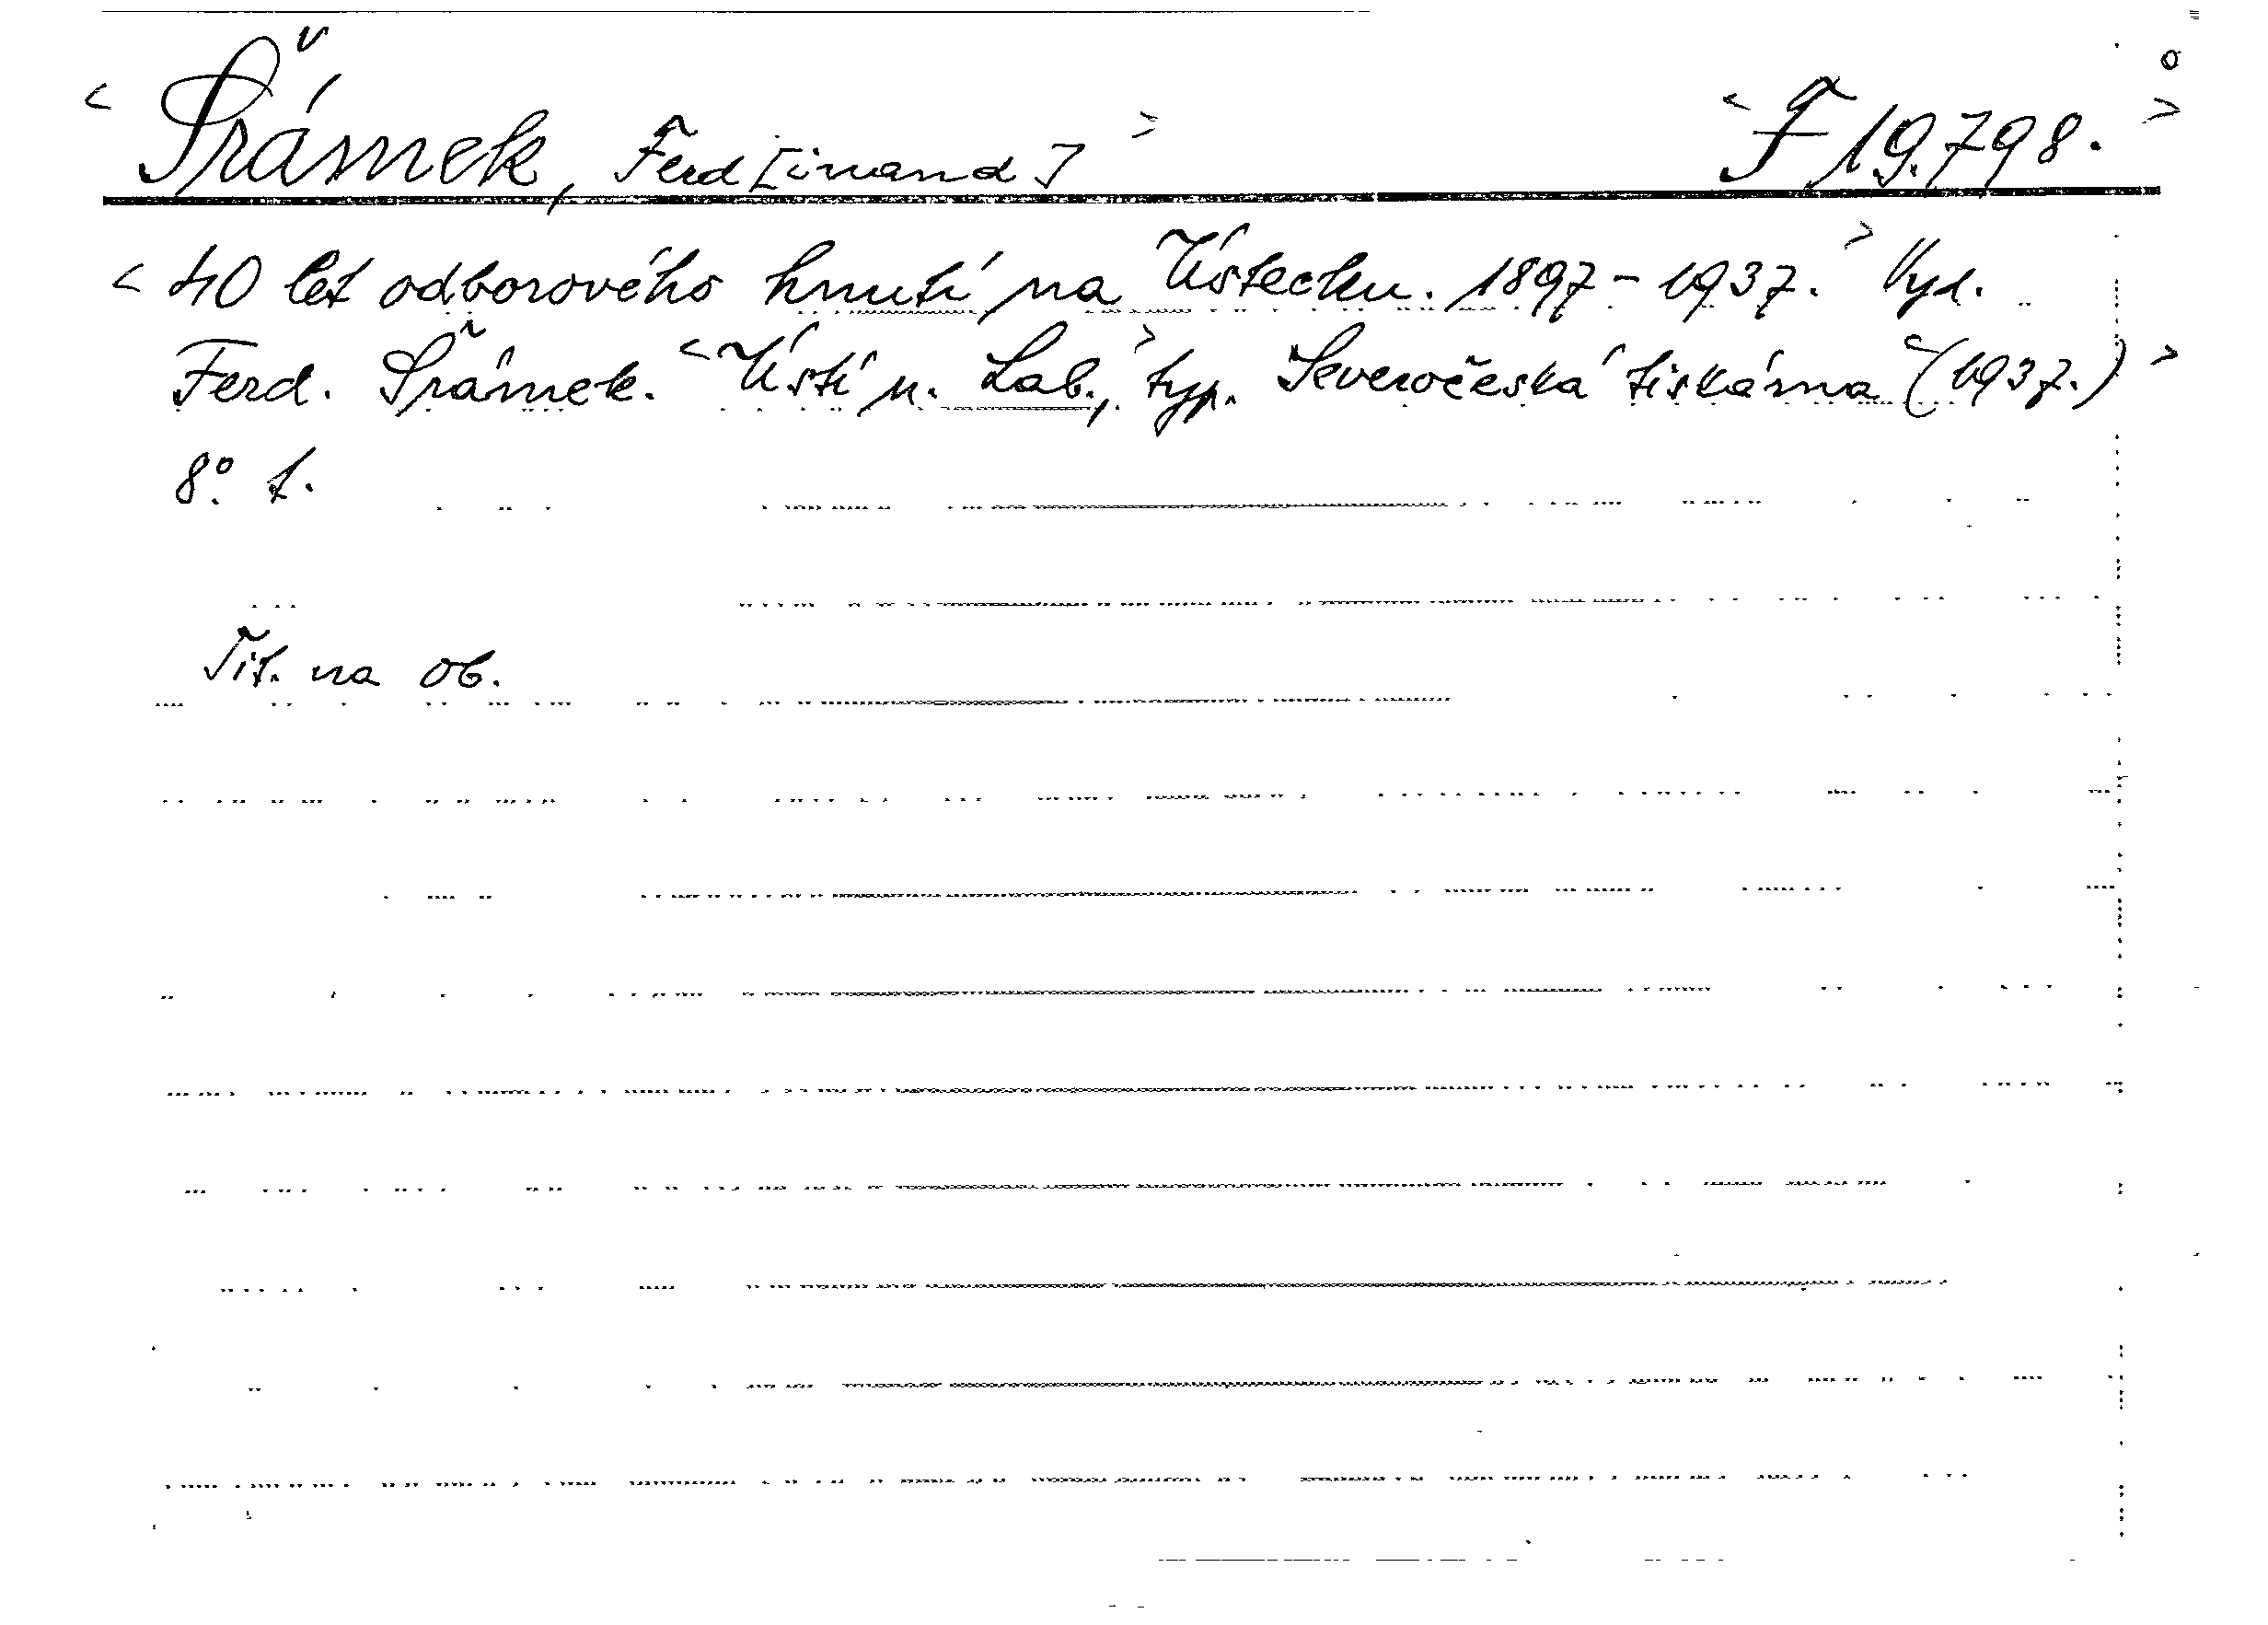 < Šrámek, Ferd[inand] > < F 19.798. >
< 40 let odborového hnutí na Ústecku. 1897-1937. > Vyd.
Ferd. Šrámek. < Ústí n. Lab., > typ. Severočeská tiskárna < (1937.) >
8°. t.
Tit. na ob.